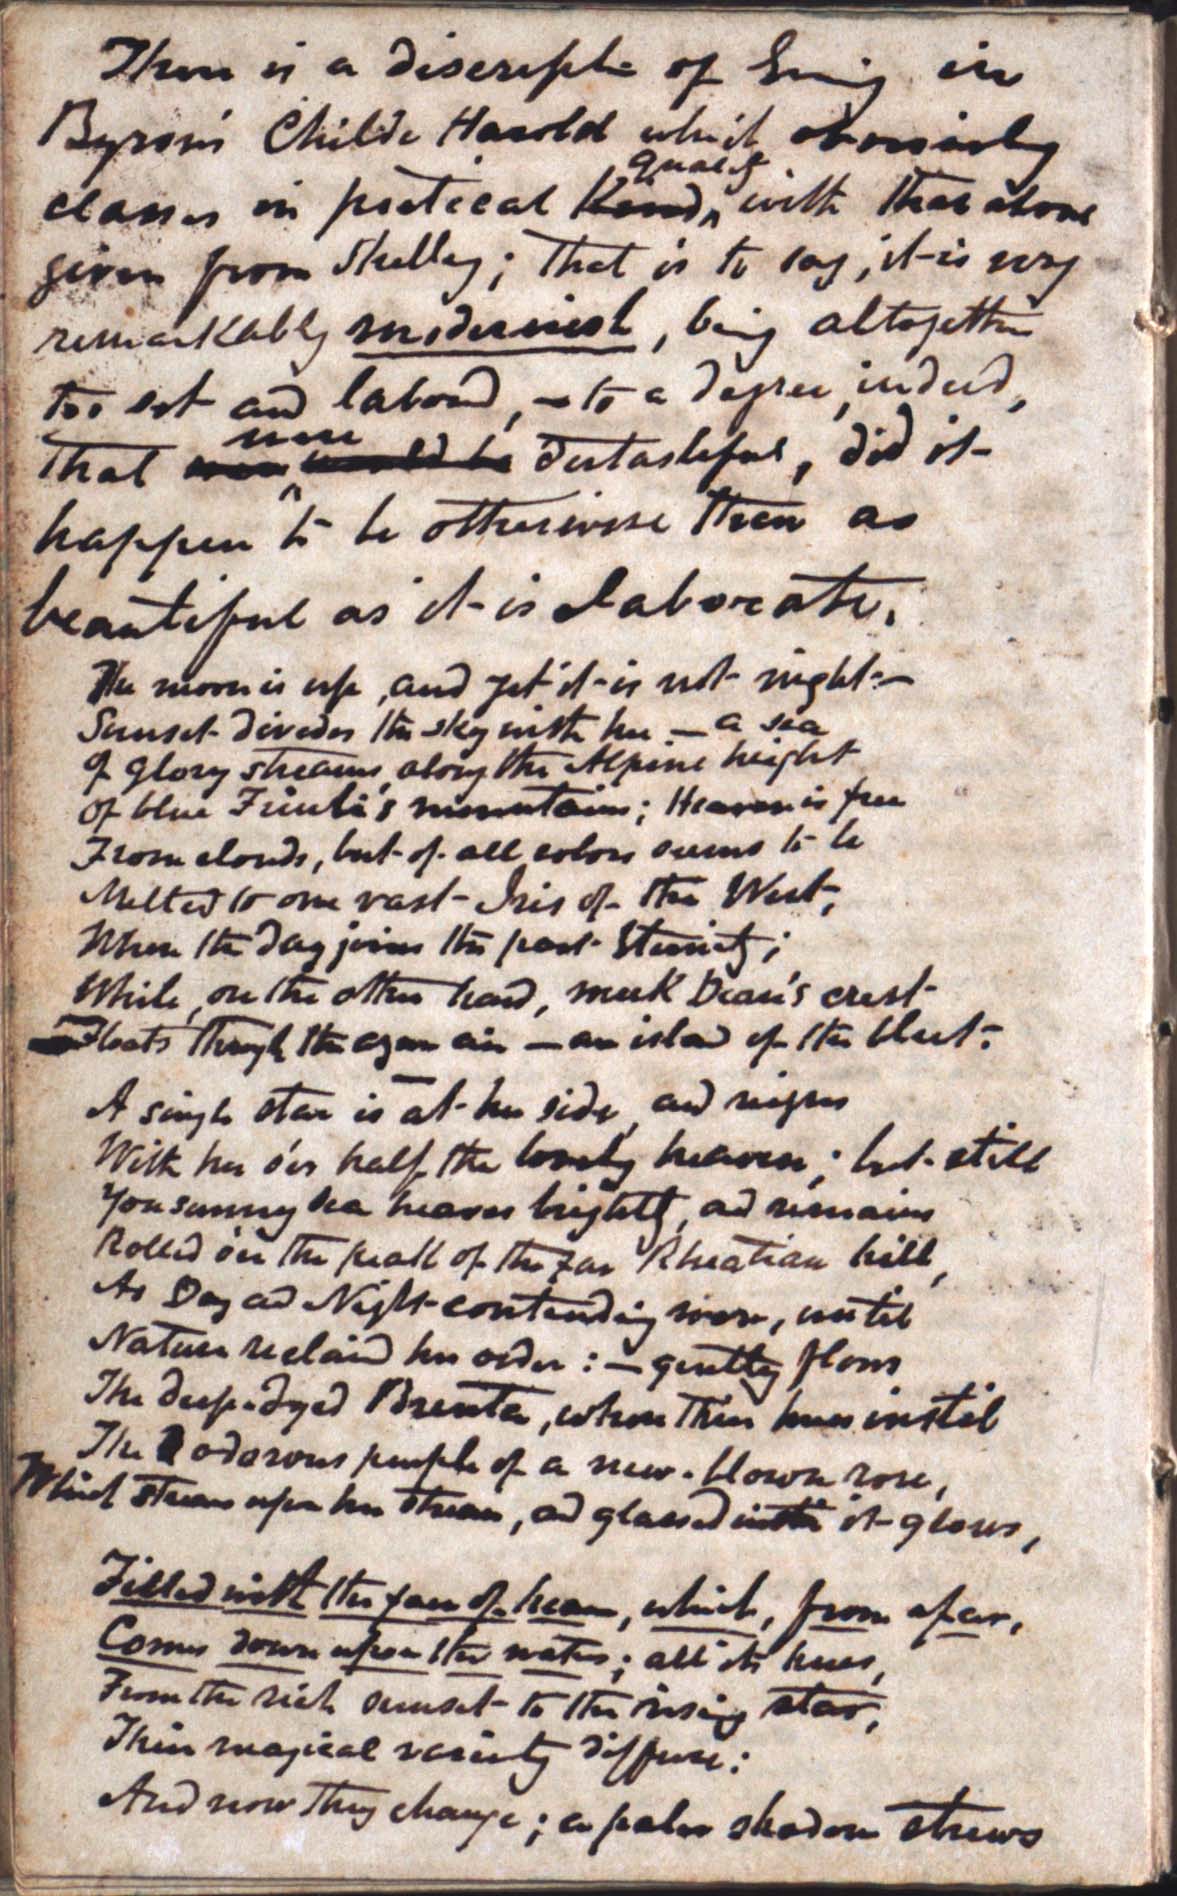 There is a descripte of Evenig in
Byron's Childe Harold which obviously
classes in poetical Kind quality with that above
given from Shelley; that is to say, it is very
remarkably modernish, being altogether
too set and labord, – to a degree, indeed,
that were would be distasteful, did it
happen to be otherwise then as
beautiful as it is elaborate.
The moon is up, and yet it is not night –
Sunset divedes the sky with her – a sea
Of glory streams along the Alpine height
Of blue Friuli's mountains; Heaven is free
From clouds, but of all colors seems to be
Melted to one vast Iris of the West,
Where the Day joins the past Eternity;
While, on the other hand, meek Dean's crest
Floats through the azure air – an island of the blest.
A single star is at her side, and reigns
With her o'er half the lovely heaven; but still
Yon sunny sea heaves brightly, and remains
Rolled o'er the peak of the far Rhaetian hill,
As Day and Night contending were, until
Nature reclaimd her order: – gently flows
The deep-dyed Brenta, where their hues instil
The odorous purple of a new-blown rose,
Which streams upon her stream, and glassed within it glows,
Filled with the face of heaven, which, from afar,
Comes down upon the waters; all its hues,
From the rich sunset to the rising star,
Their magical variety diffuse:
And now they change; a paler shadow strews